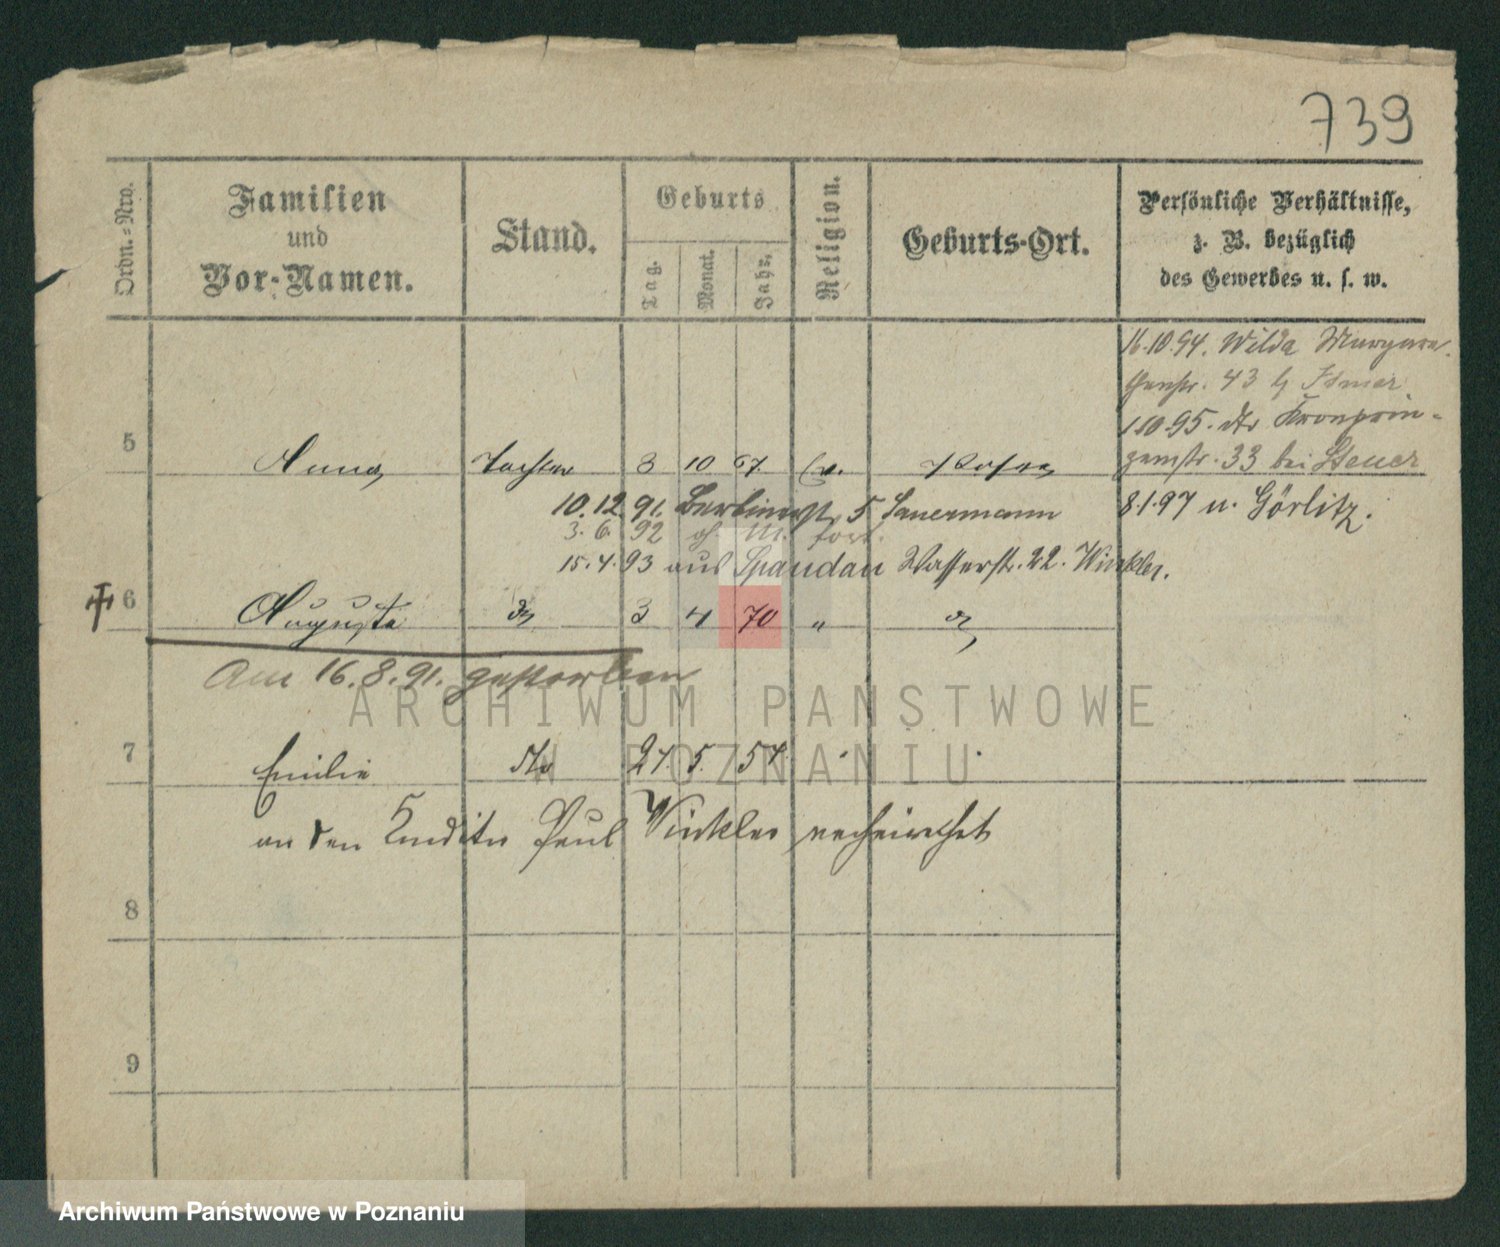 739
Ordn.-Nro.
Familien
und
Vor-Namen.
Stand.
Geburts
Tag.
Monat.
Jahr.
Religion.
Geburts-Ort.
Persönliche Verhältnisse,
z. B. bezüglich
des Gewerbes u. s. w.
16.10.94. Wilda Margare-
thenstr. 43 b/
1.10.95. dto Kronprin-
zenstr. 33 bei Steuer
5 Anna Tochter 3 10 67. Ev. Posen
10.12.91. Berlinerstr. 5 Sauermann
8.1.97 n. Görlitz.
3. 6. 92 fort.
15.4.93 aus Spandau Wasserstr. 22. Winkler.
6 Auguste do 3 4 70 " do
Am 16.8.91. gestorben
7 Emilie dto 27. 5. 57.
an den Konditor Paul Winkler verheirathet
8
9
ARCHIWUM PAŃSTWOWE
W POZNANIU
Archiwum Państwowe w Poznaniu